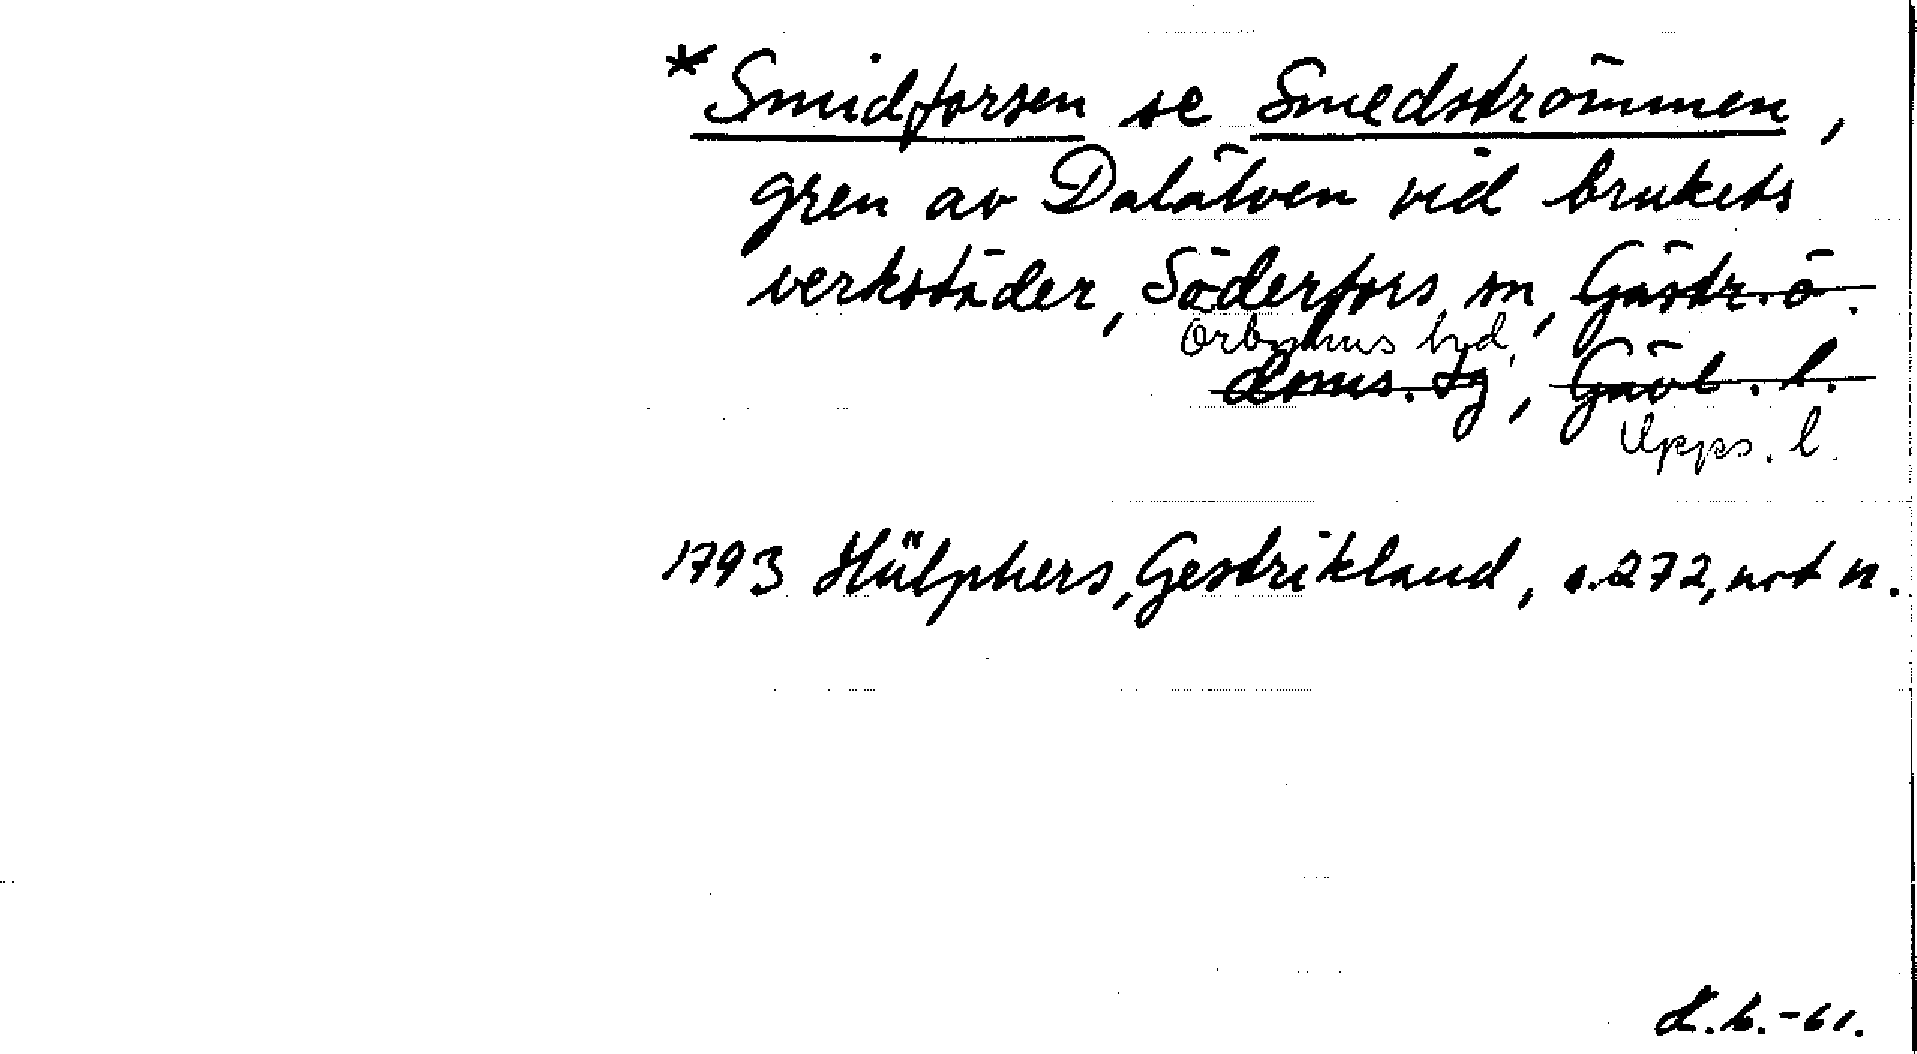 *Smidforsen se Smedströmmen,
gren av Dalälven vid brukets
verkstäder, Söderfors sn, Gästr. ö.
Örbyhus hd,
doms. sg, Gävl. l.
Upps. l.
1793 Hülphers, Gestrikland, s. 272, not n.
-61.